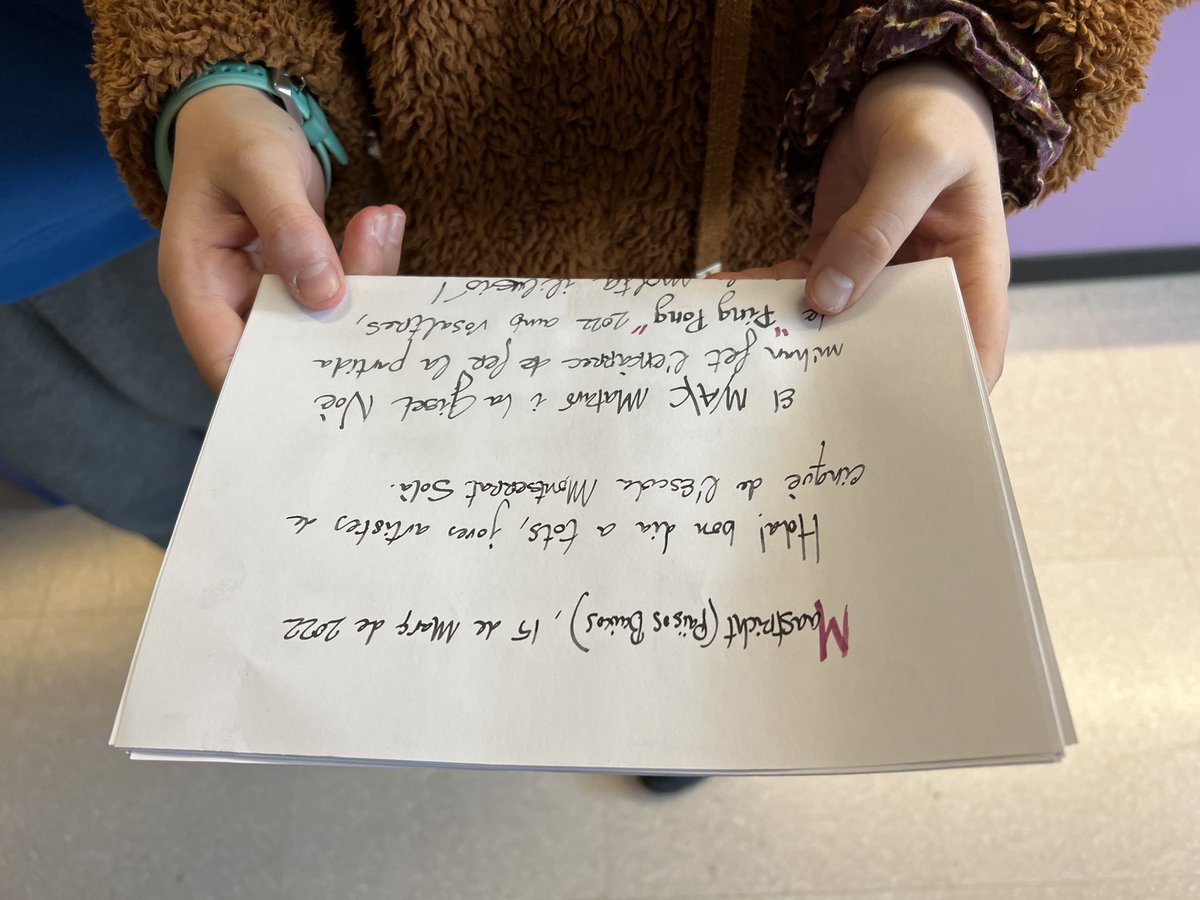 Maastricht (Països Baixos), 15 de Març de 2022
Hola! bon dia a tots, joves artistes de
cinquè de l'Escola Montserrat Solà.
El M|A|C Mataró i la Gisel Noè
m'han fet l'encàrrec de fer la partida
de "Ping Pong" 2022 amb vosaltres,
molta il·lusió!